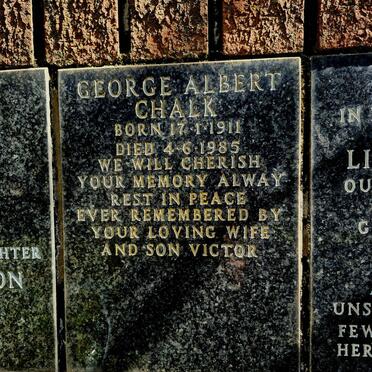 GEORGE ALBERT
CHALK
BORN 17·1·1911
DIED 4·6·1985
WE WILL CHERISH
YOUR MEMORY ALWAY
REST IN PEACE
EVER REMEMBERED BY
YOUR LOVING WIFE
AND SON VICTOR
GHTER
ON
IN
LI
OU
G
UNS
FEW
HER